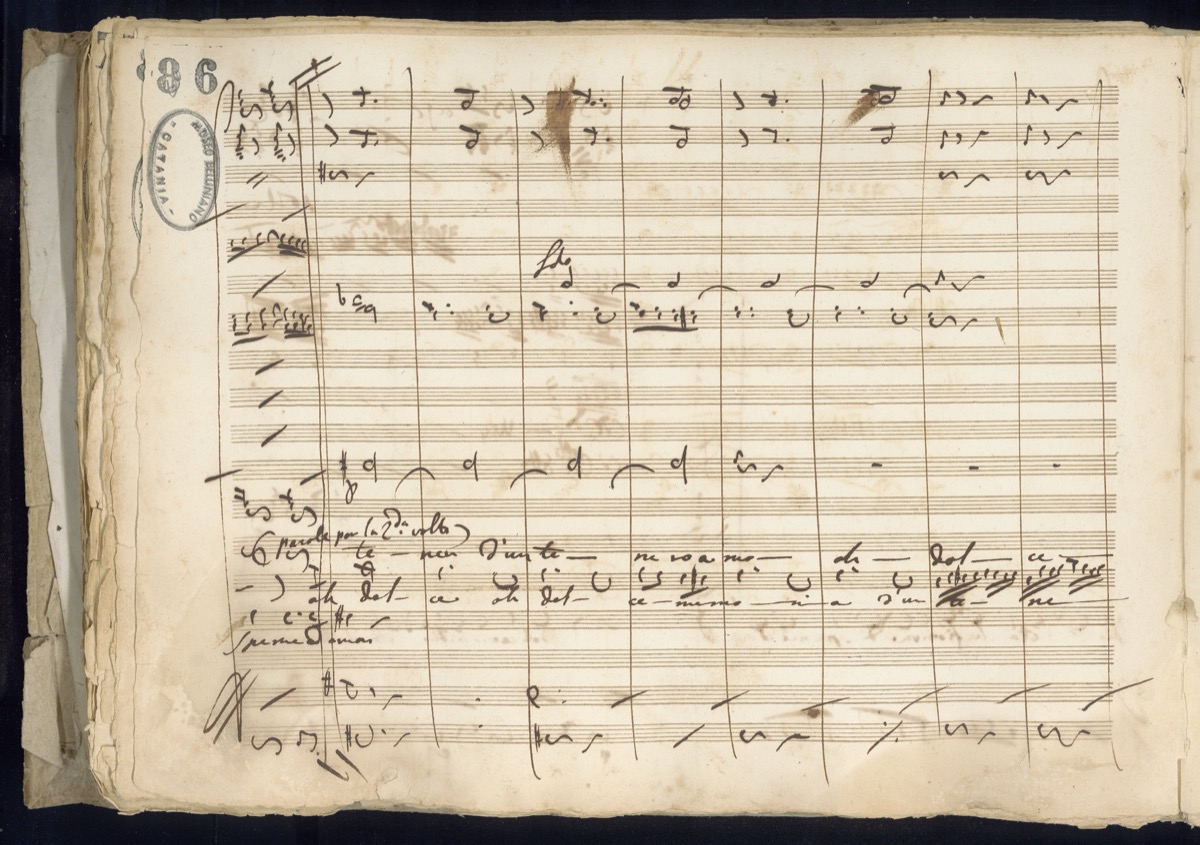 86
MUSEO BELLINIANO
- CATANIA -
Solo
(parole per la 2da volta)
te – ner d'un te – ne ro a mo – oh – dol – ce –
ah dol – ce oh dol – ce – memo – ri a d'un te – ne
speme d'amor